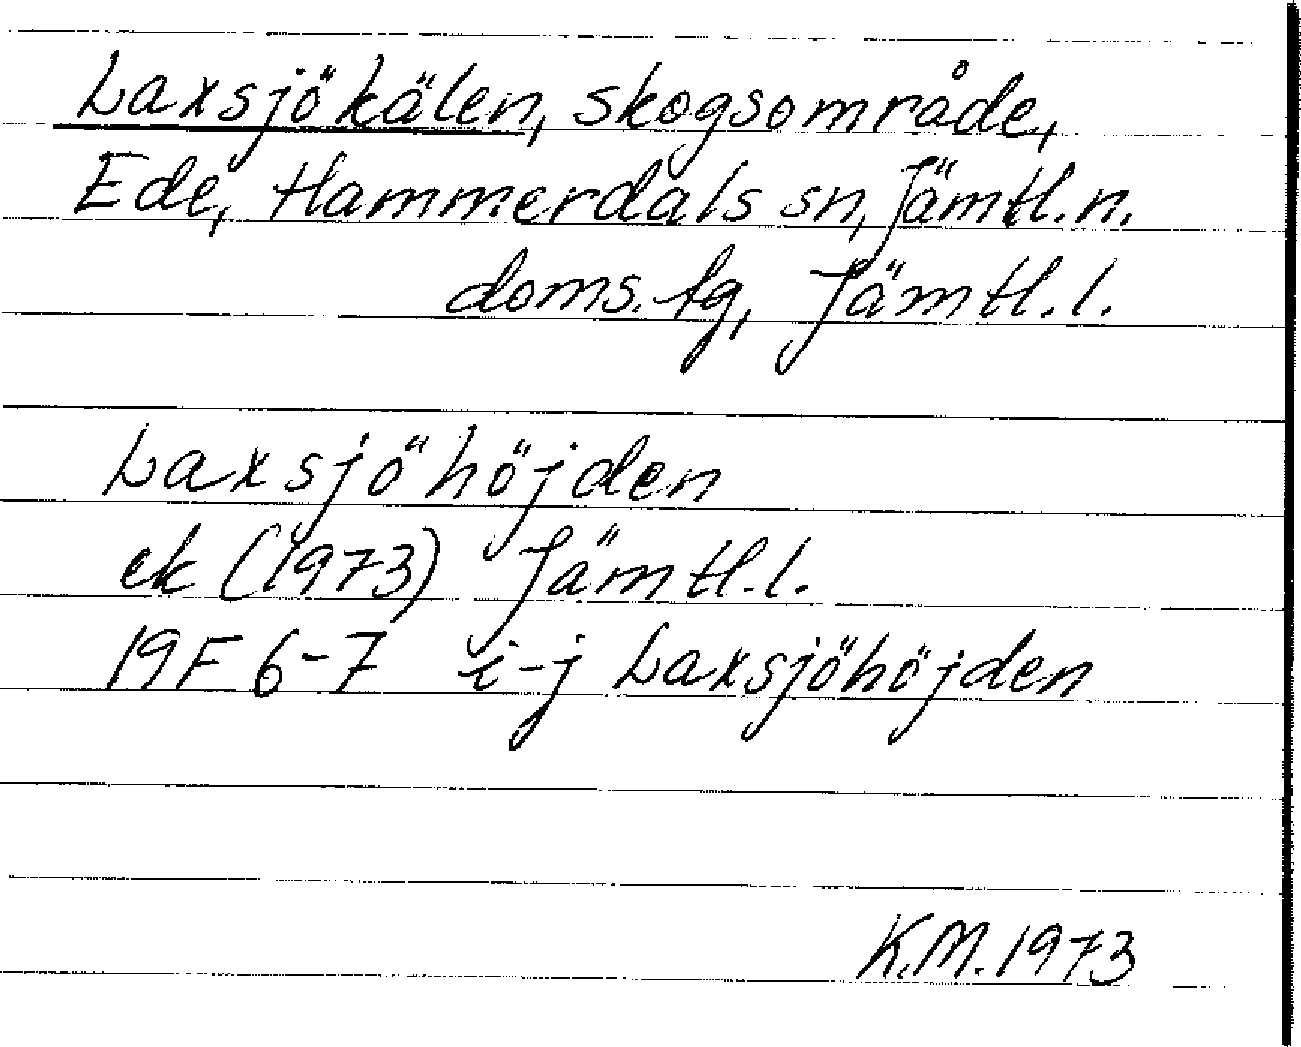 Laxsjökälen, skogsområde,
Ede, Hammerdals sn, Jämtl.n.
doms.tg, Jämtl.l.
Laxsjöhöjden
ek (1973) Jämtl.l.
19F 6-7 i-j Laxsjöhöjden
K.M. 1973